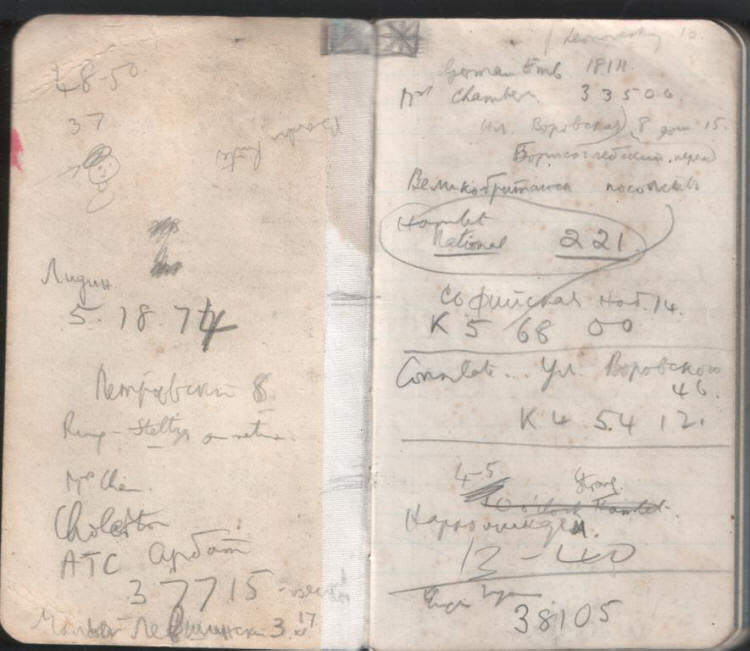 48-50
37
Лидин
5. 18. 74
Петровский 8
Ring - on return.
Mr Chen.
Choleston
АТС Арбат
3 7715
Малый Левшинский 3. 17
10
German Emb. 1811.
Mrs Chambers 33500.
ул. Воровская 8 дом 15.
Борисоглебский. пер
Великобритания посольство
Hamlet
National 221.
Софийская наб 14.
K 5 68 00
Consulate.. Ул. Воровского
46.
K 4 54 12.
4-5
Strang.
10 o'clock Hamlet.
12 - 40
38105